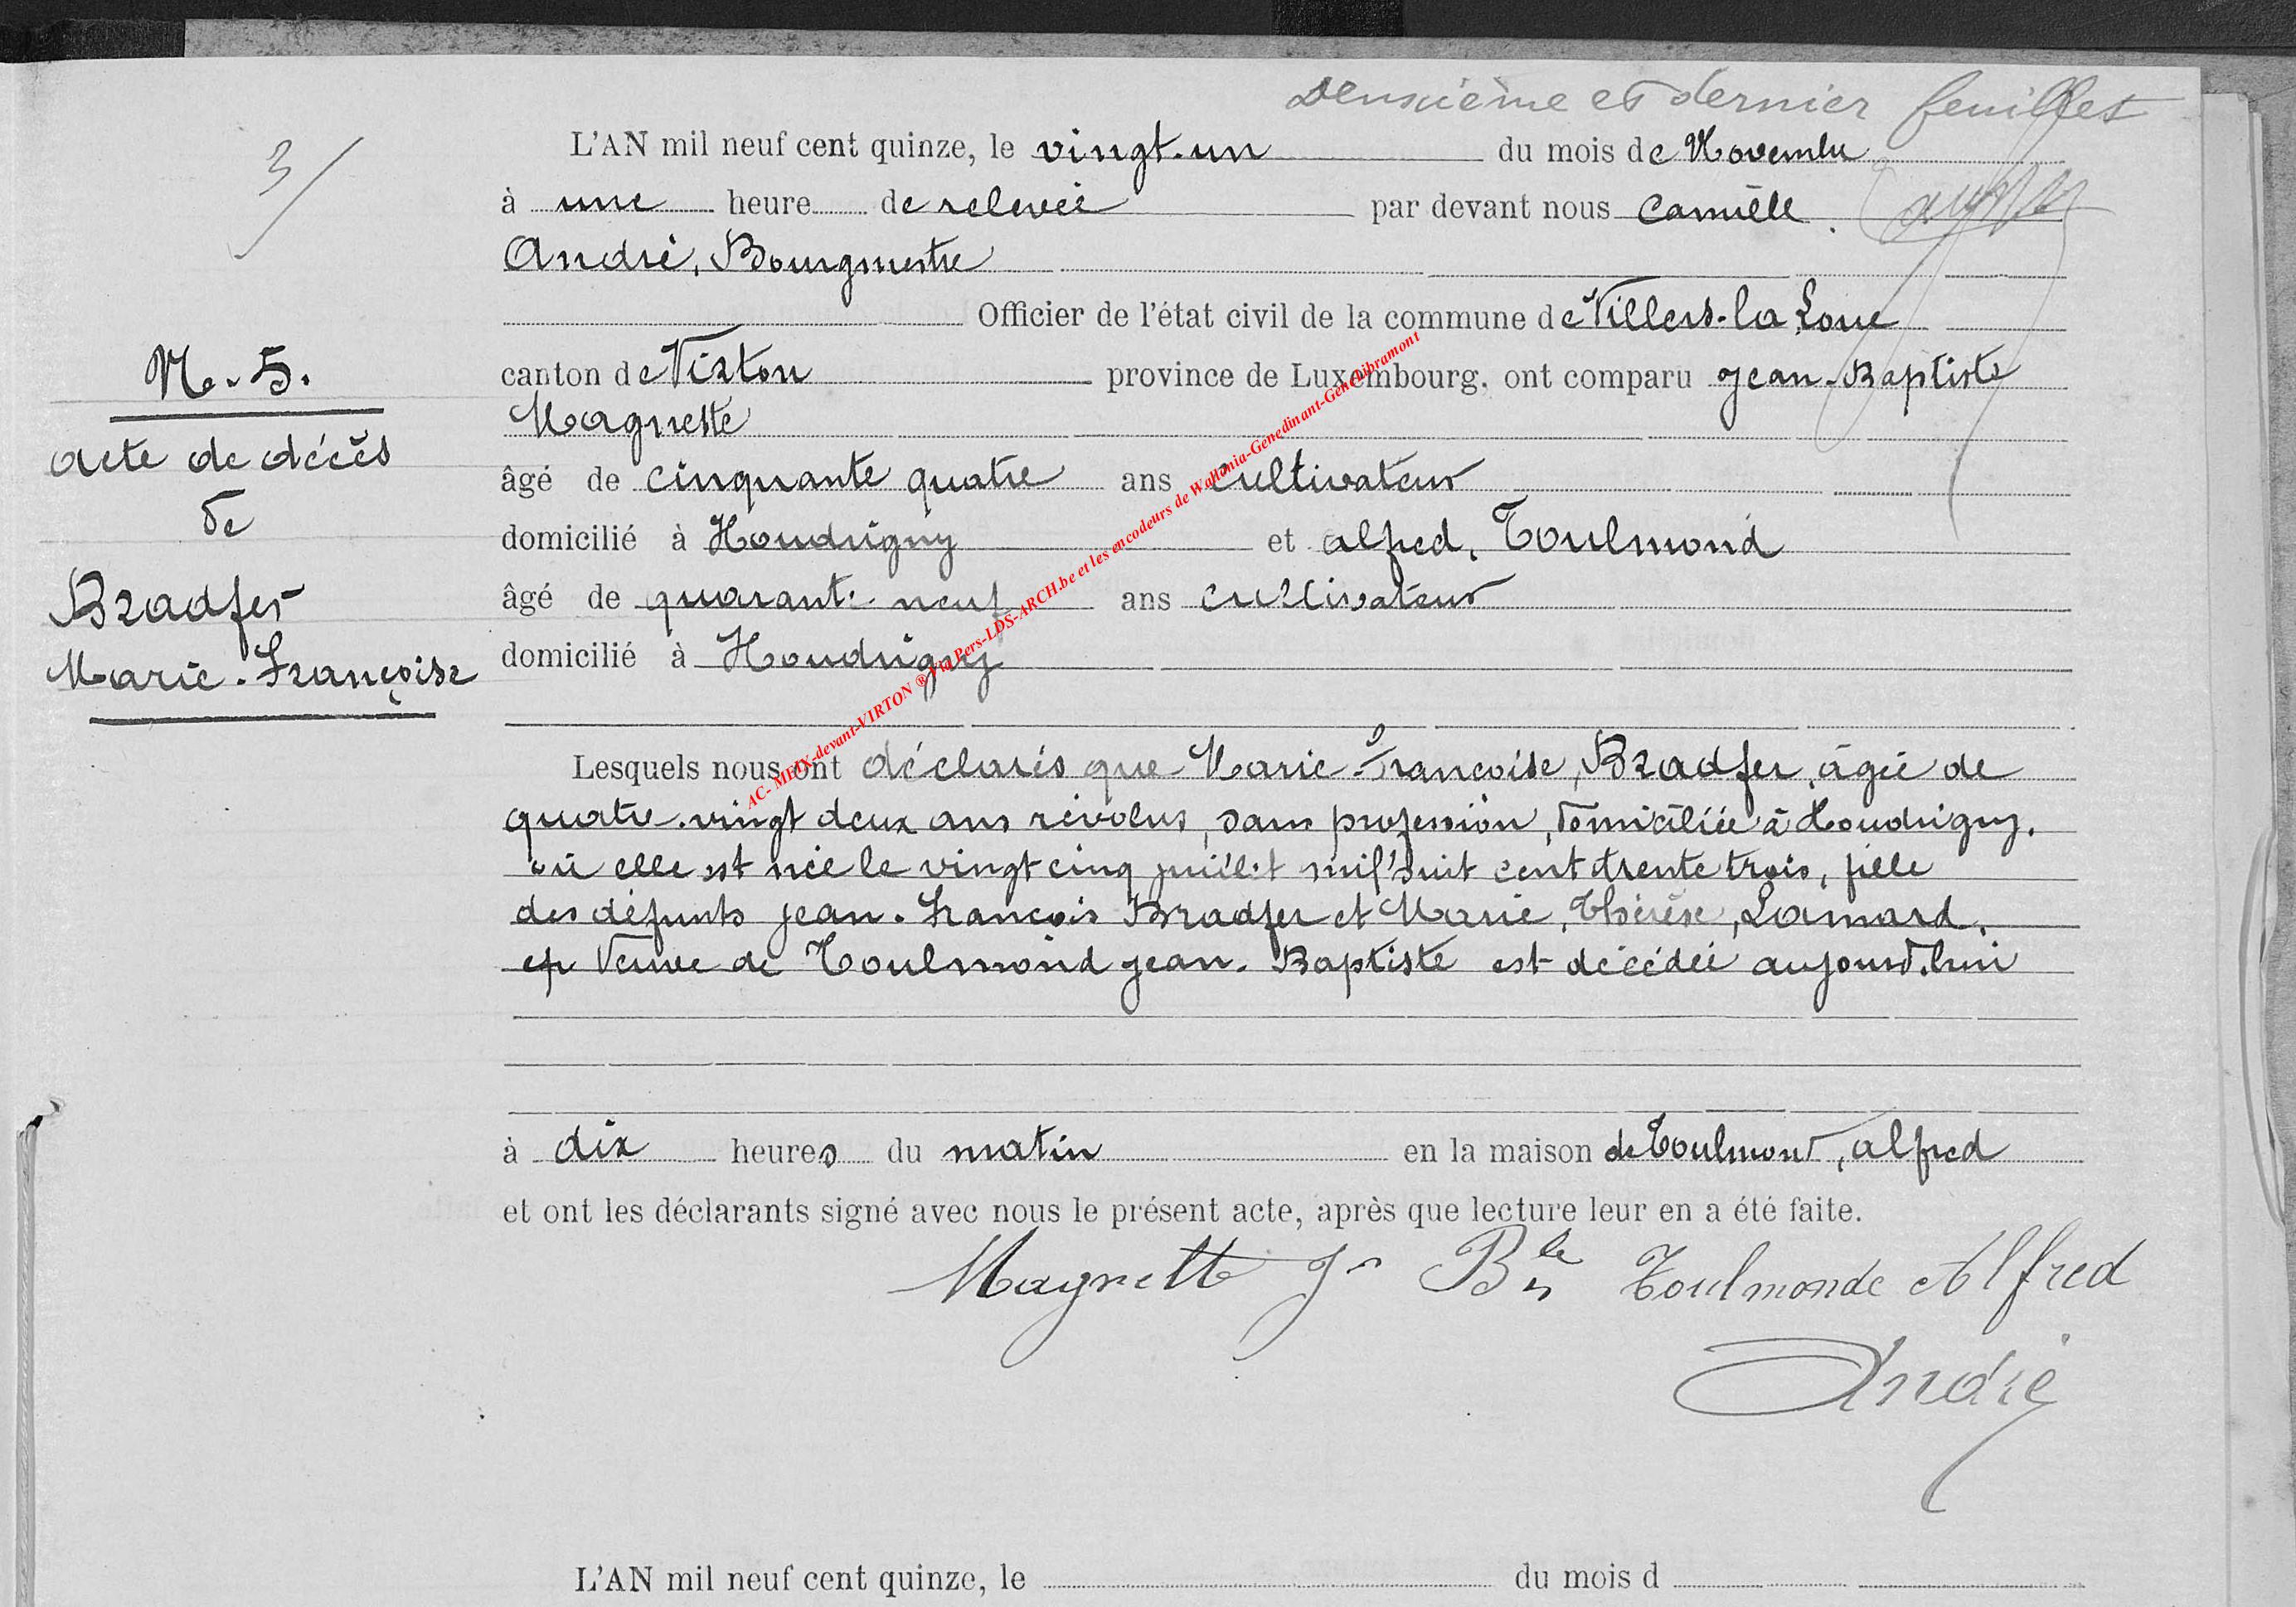 Deuxième et dernier feuillet
3/
L'AN mil neuf cent quinze, le vingt-un du mois de Novembre
à une heure de relevée par devant nous Camille
André, Bourgmestre
Officier de l'état civil de la commune de Villers-la-Loue
canton de Virton province de Luxembourg, ont comparu Jean-Baptiste
Magnette
âgé de cinquante quatre ans cultivateur
domicilié à Houdrigny et Alfred, Toulmond
âgé de quarante-neuf ans cultivateur
domicilié à Houdrigny
No. 5.
acte de décès
de
Bradfer
Marie-Françoise
Lesquels nous ont déclarés que Marie-Françoise, Bradfer, âgée de
quatre-vingt deux ans révolus, sans profession, domiciliée à Houdrigny.
où elle est née le vingt cinq juillet mil huit cent trente trois, fille
des défunts Jean-François Bradfer et Marie, Thérèse, Lamard,
ep Veuve de Toulmond Jean-Baptiste est décédée aujourd'hui
à dix heures du matin en la maison de Toulmond, Alfred
et ont les déclarants signé avec nous le présent acte, après que lecture leur en a été faite.
Magnette Jn Bte Toulmonde Alfred
André
L'AN mil neuf cent quinze, le du mois d
AC- MEIX-devant-VIRTON ® Via Pers-LDS-ARCH.be et les encodeurs de Wallonia-Genedinant-Genelibramont